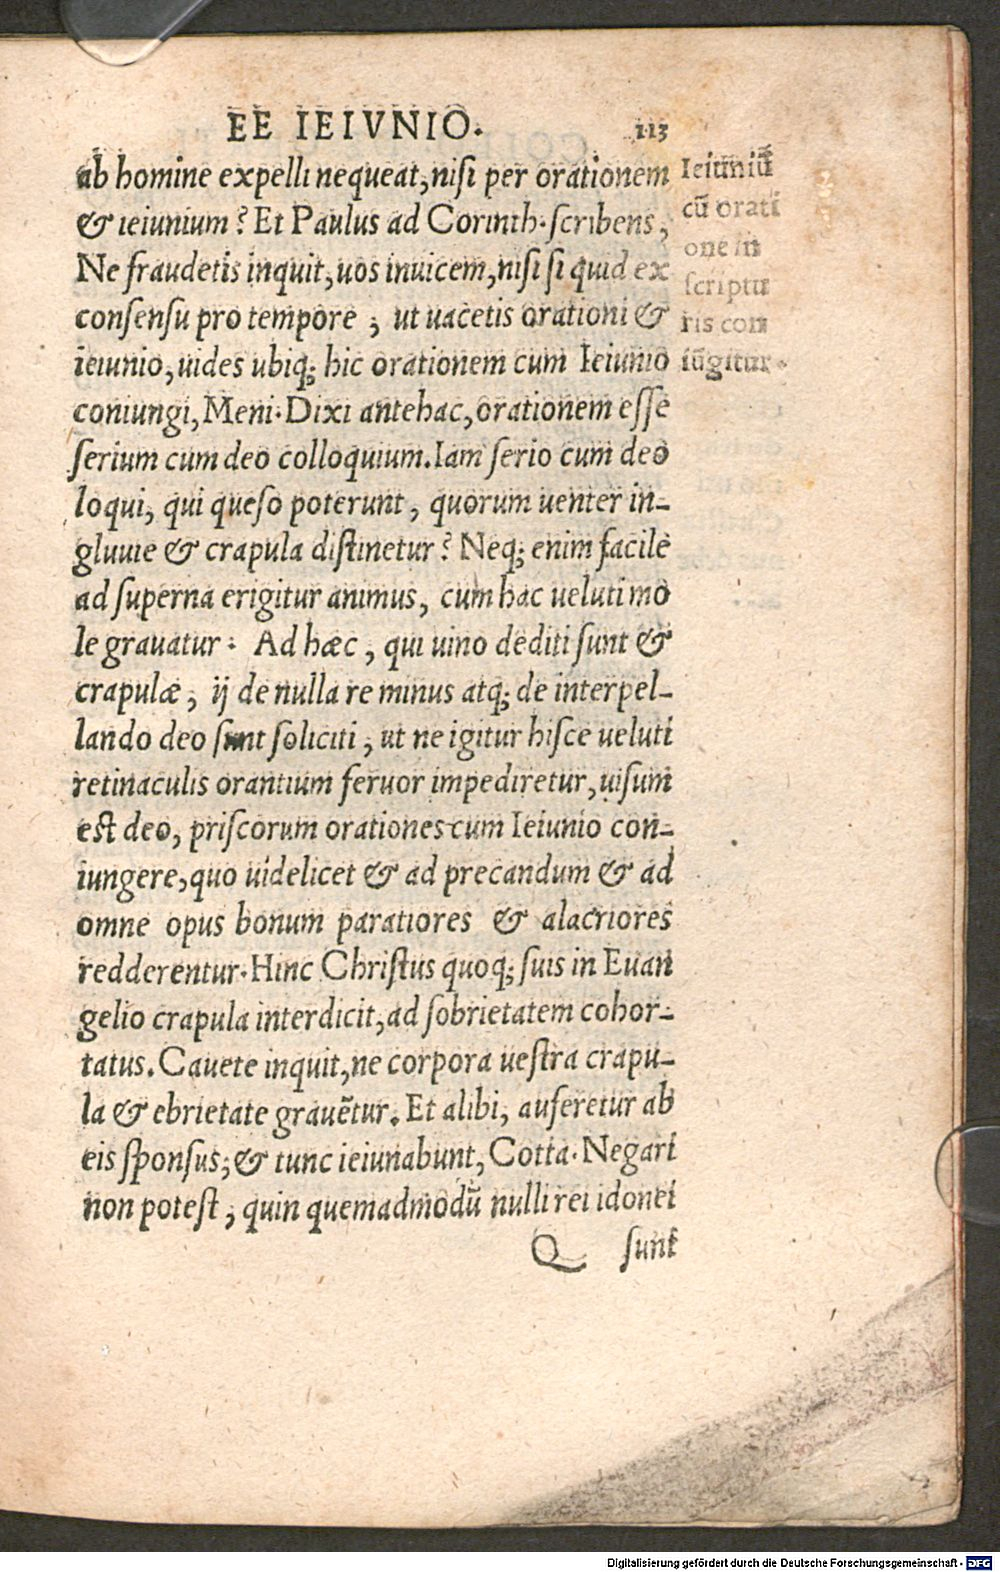 EE IEIVNIO. 113
ab homine expelli nequeat, nisi per orationem
& ieiunium? Et Paulus ad Corinth. scribens,
Ne fraudetis inquit, uos inuicem, nisi si quid ex
consensu pro tempore, ut uacetis orationi &
ieiunio, uides ubiq; hic orationem cum Ieiunio
coniungi, Meni. Dixi antehac, orationem esse
serium cum deo colloquium. Iam serio cum deo
loqui, qui queso poterunt, quorum uenter in-
gluuie & crapula distinetur? Neq; enim facile
ad superna erigitur animus, cum hac ueluti mo
le grauatur. Ad hæc, qui uino dediti sunt &
crapulæ, ij de nulla re minus atq; de interpel-
lando deo sunt soliciti, ut ne igitur hisce ueluti
retinaculis orantium feruor impediretur, uisum
est deo, priscorum orationes cum Ieiunio con-
iungere, quo uidelicet & ad precandum & ad
omne opus bonum paratiores & alacriores
redderentur. Hinc Christus quoq; suis in Euan
gelio crapula interdicit, ad sobrietatem cohor-
tatus. Cauete inquit, ne corpora uestra crapu-
la & ebrietate grauẽtur. Et alibi, auferetur ab
eis sponsus, & tunc ieiunabunt, Cotta. Negari
non potest, quin quemadmodũ nulli rei idonei
Q sunt
Ieiuniũ
cũ orati
one in
scriptu
ris con
iũgitur.
Digitalisierung gefördert durch die Deutsche Forschungsgemeinschaft - DFG